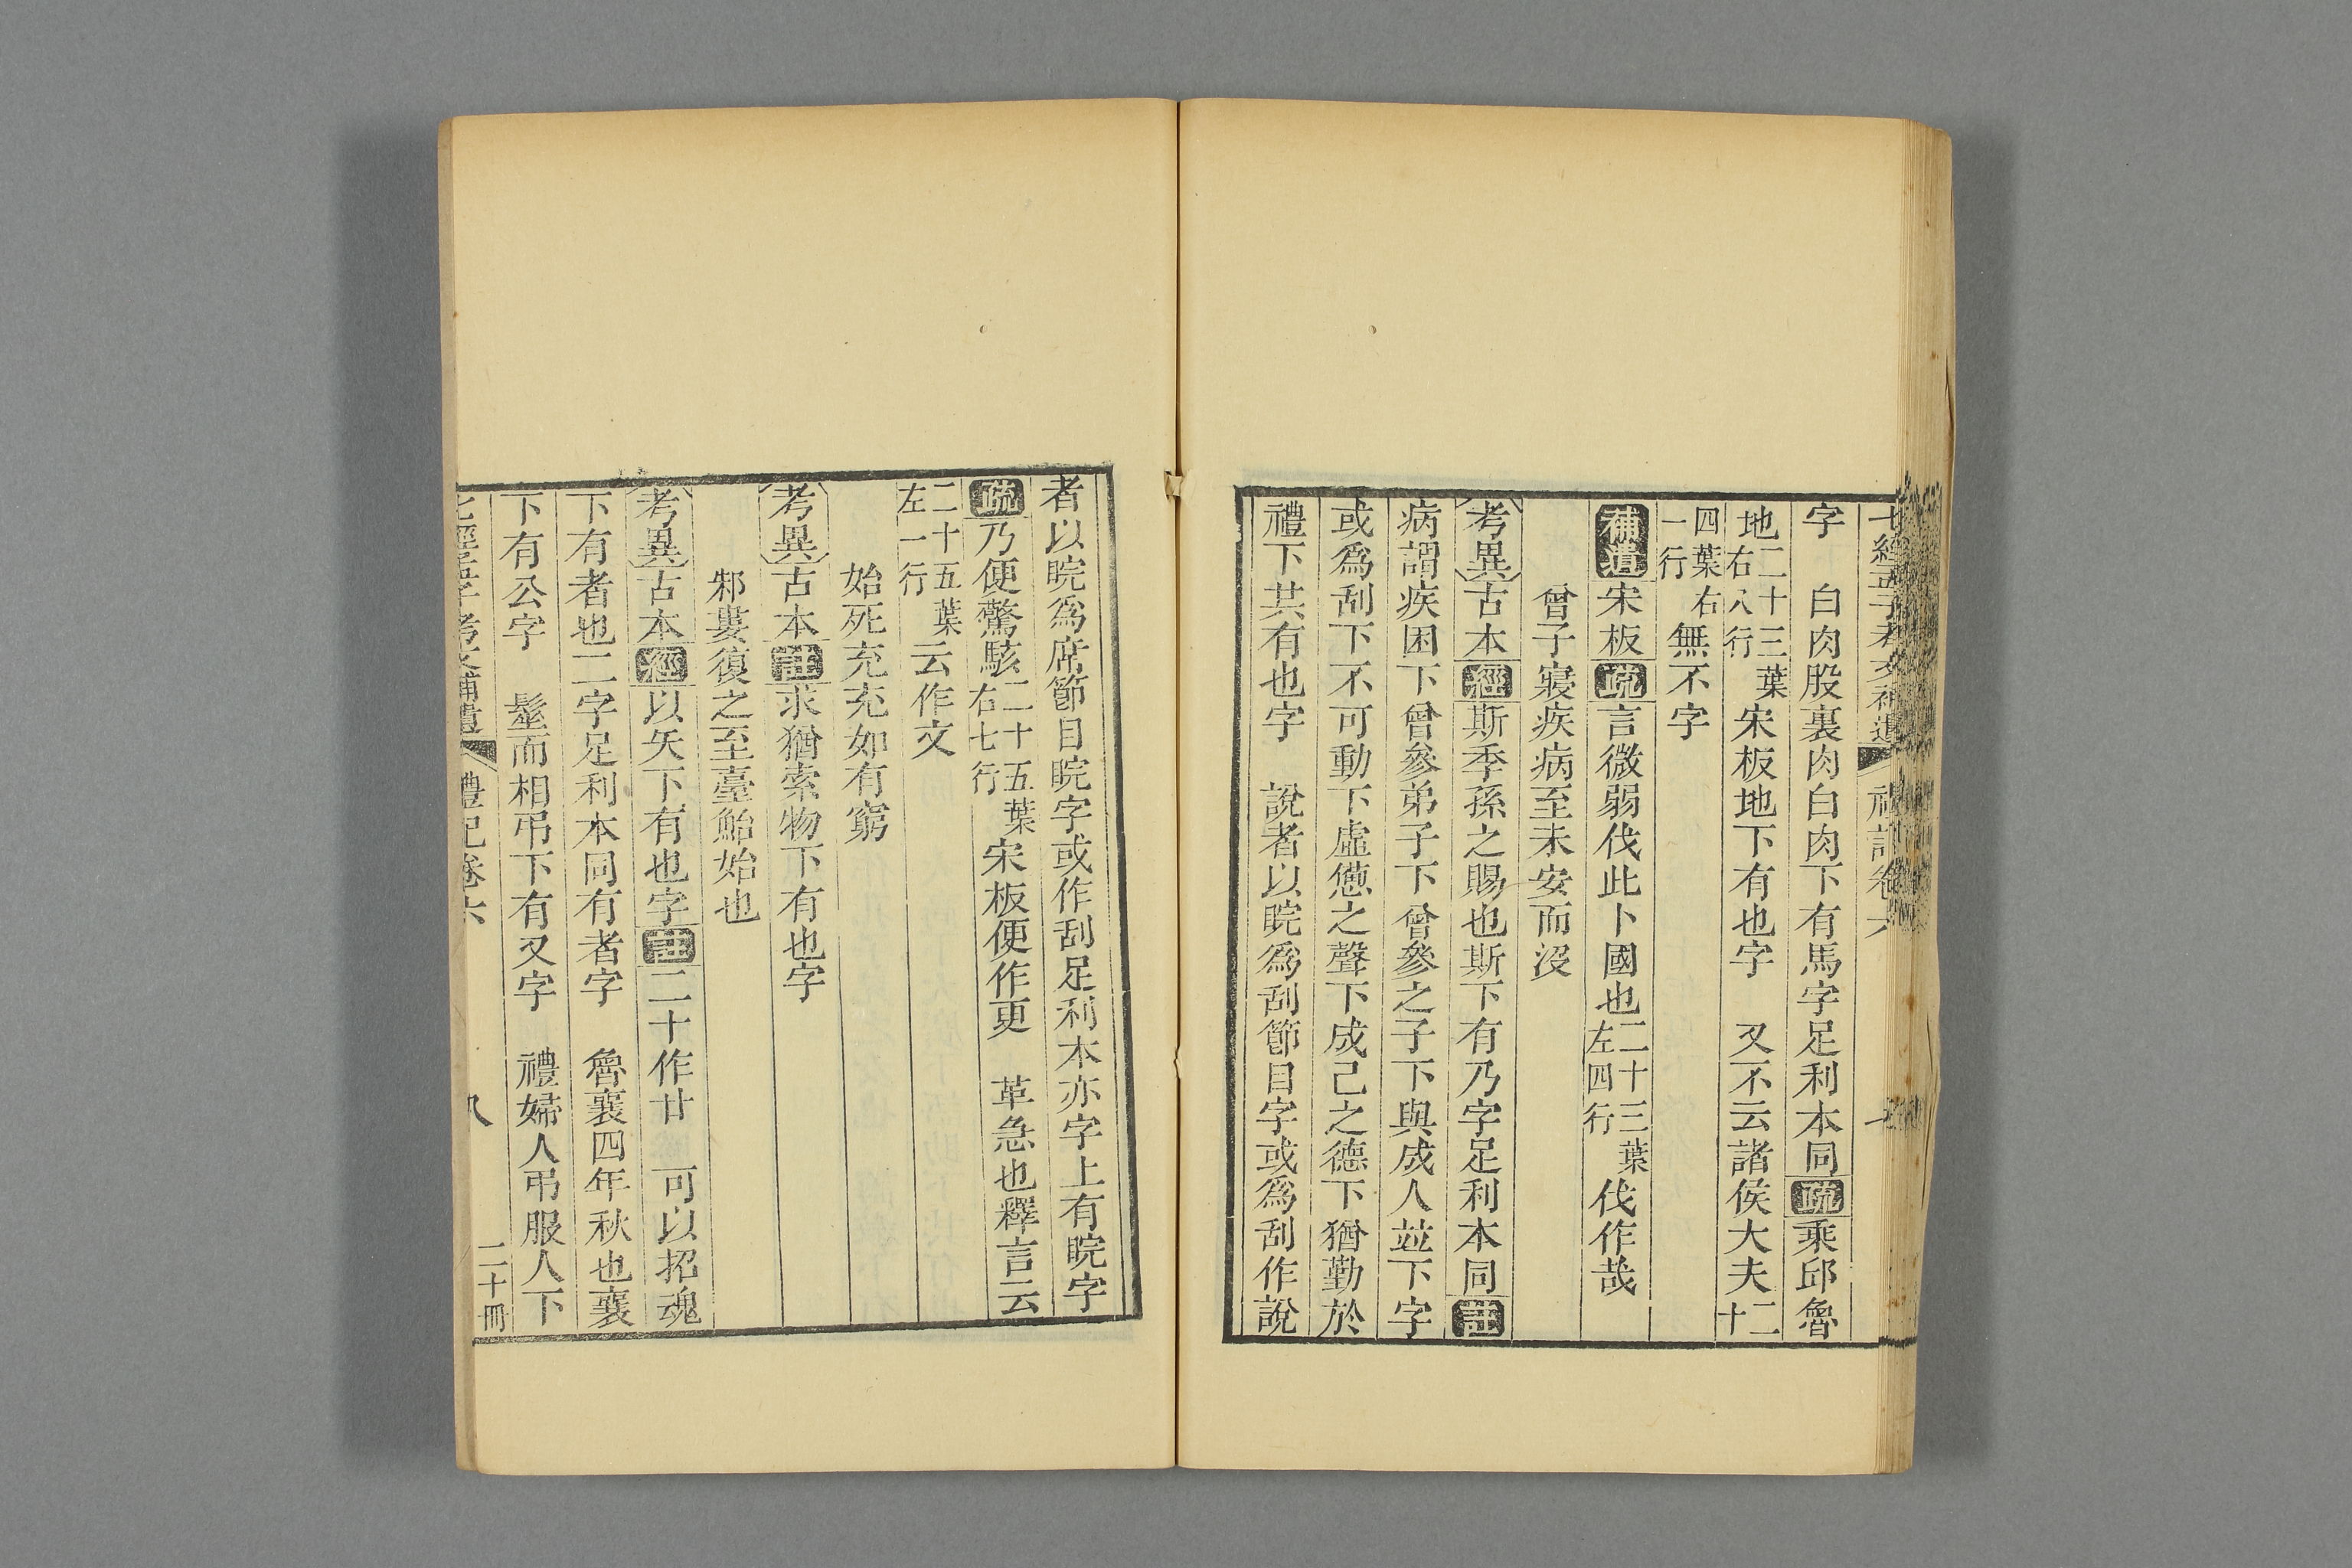 七經孟子考文補遺 禮記卷六
字 白肉股裏肉白肉下有馬字足利本同疏乘邱魯
地二十三葉右八行宋板地下有也字 又不云諸侯大夫二十
四葉右一行無不字
補遺宋板疏言微弱伐此卜國也二十三葉左四行伐作哉
曾子寢疾病至未安而沒
考異古本經斯季孫之賜也斯下有乃字足利本同註
病謂疾困下曾參弟子下曾參之子下與成人竝下字
或爲刮下不可動下虛憊之聲下成己之德下猶勤於
禮下共有也字 說者以睆爲刮節目字或爲刮作說
者以睆爲席節目睆字或作刮足利本亦字上有睆字
疏乃便驚駭二十五葉右七行宋板便作更 革急也釋言云
二十五葉左一行云作文
始死充充如有窮
考異古本註求猶索物下有也字
邾婁復之至臺鮐始也
考異古本經以矢下有也字註二十作廿 可以招魂
下有者也二字足利本同有者字 魯襄四年秋也襄
下有公字 髽而相弔下有又字 禮婦人弔服人下
七經孟子考文補遺 禮記卷六 八 二十冊